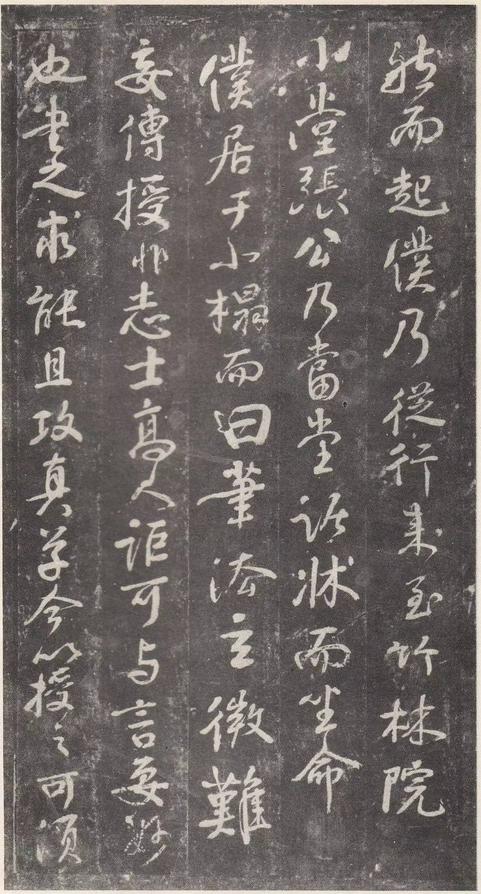 然而起僕乃從行来至竹林院
小堂張公乃當堂踞牀而坐命
僕居于小榻而曰筆法玄微難
妄傳授非志士高人詎可与言要妙
也書之求能且攻真草今以授之可須